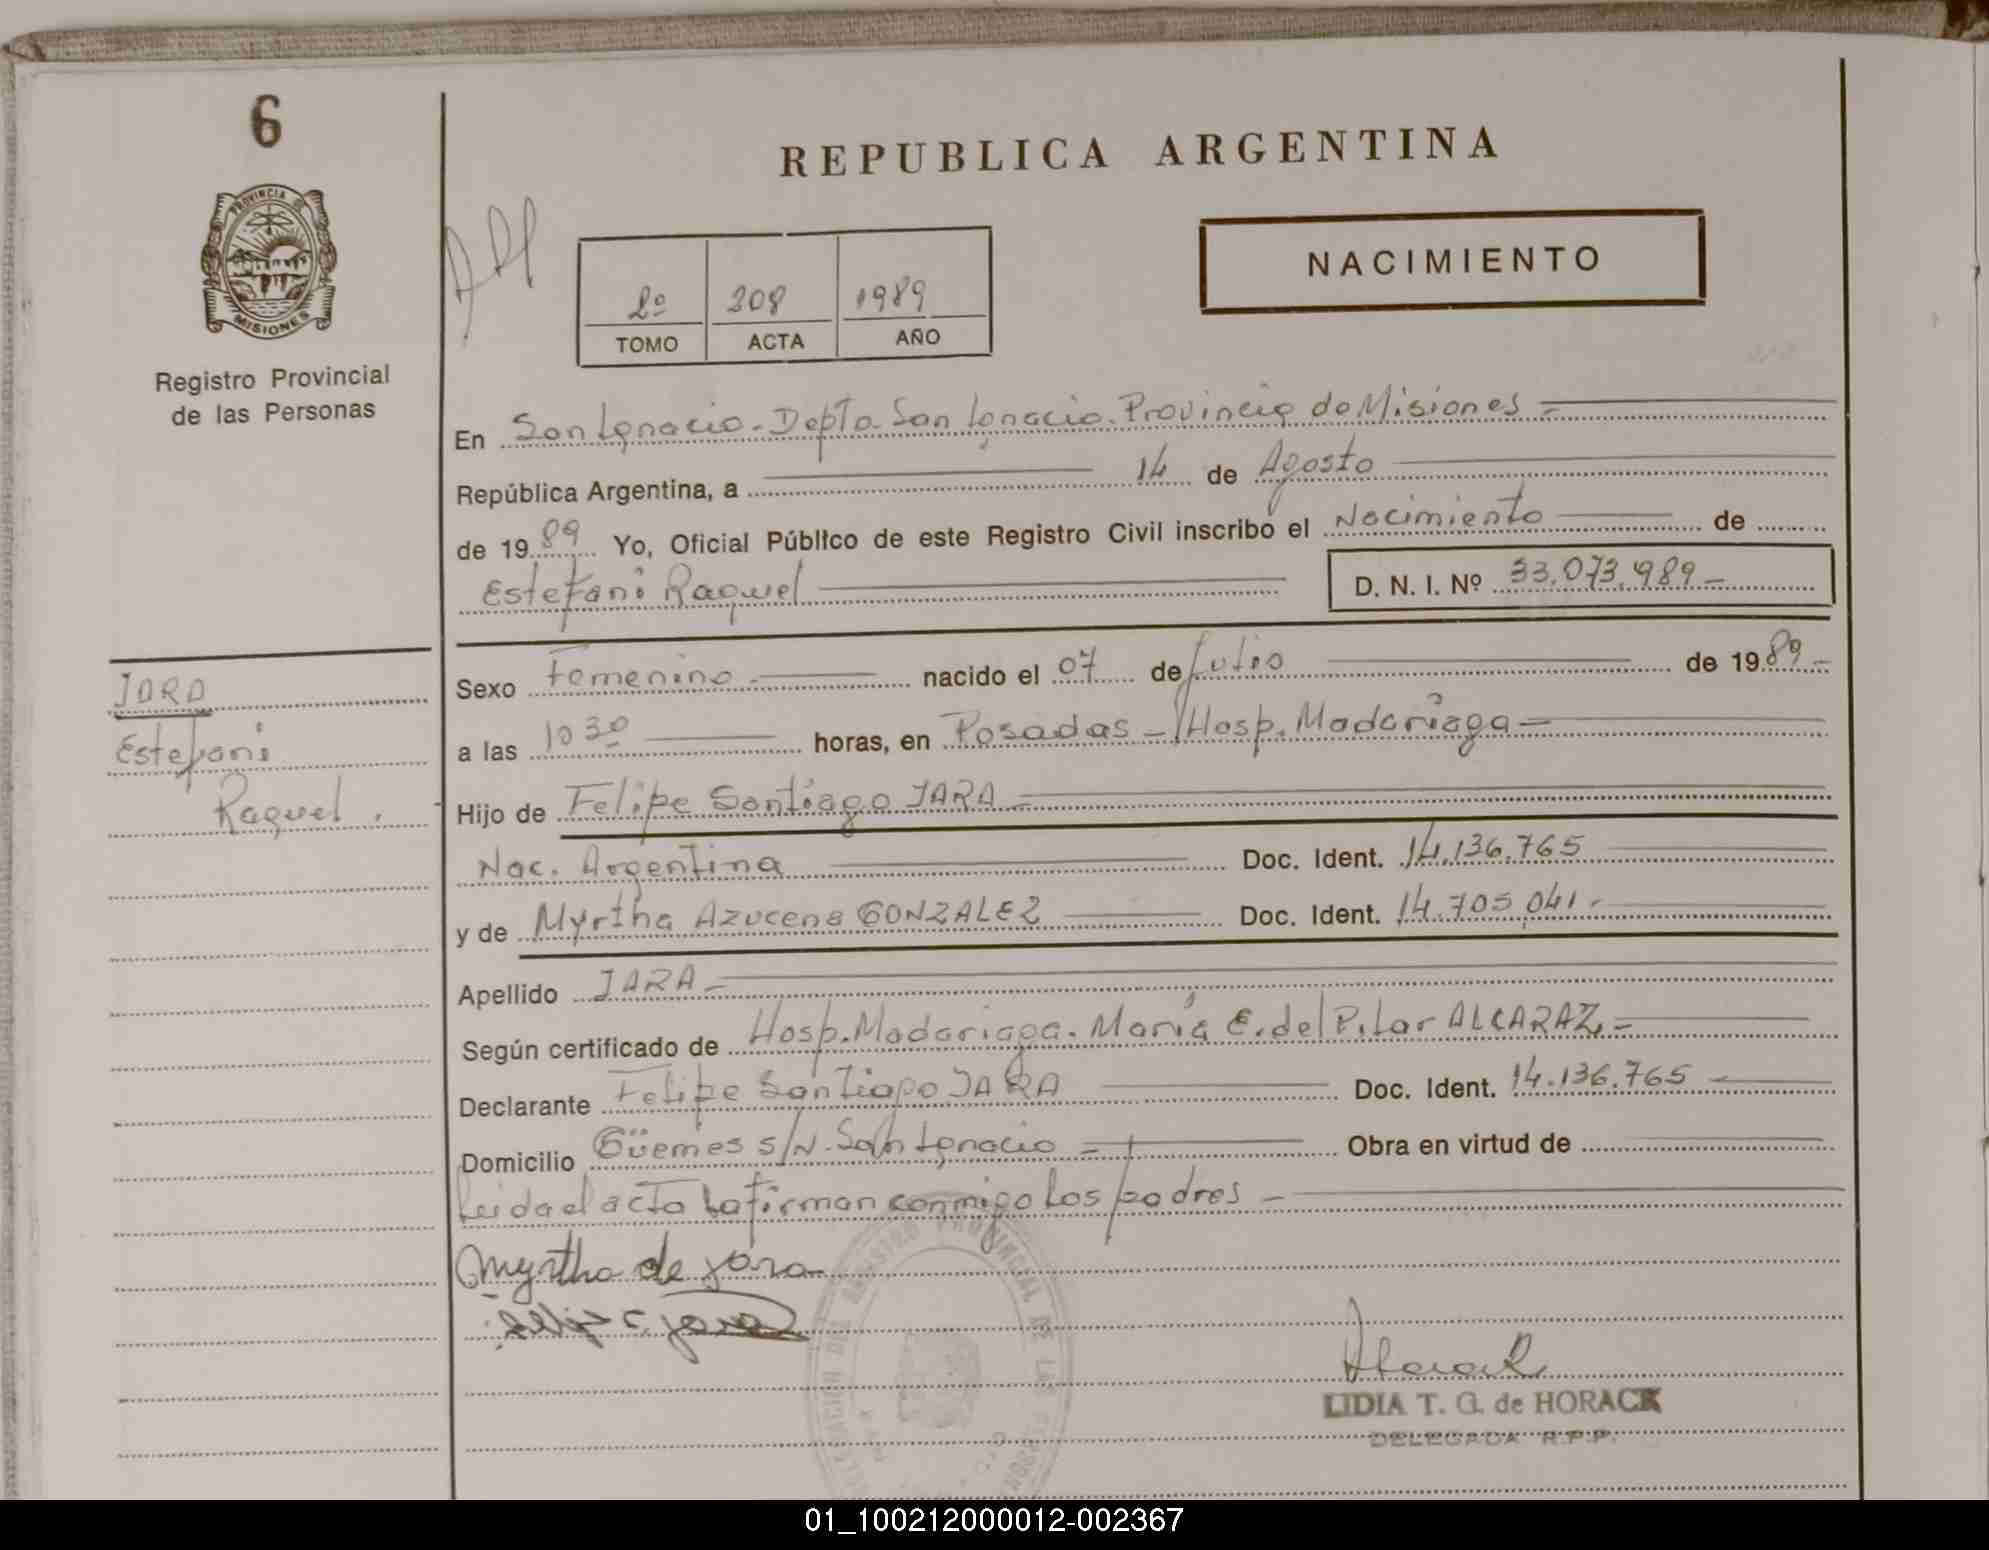 6
PROVINCIA DE
MISIONES
Registro Provincial
de las Personas
REPUBLICA ARGENTINA
NACIMIENTO
2º 208 1989
TOMO ACTA AÑO
En San Ignacio - Depto San Ignacio. Provincia de Misiones -
República Argentina, a 14 de Agosto
de 1989 Yo, Oficial Público de este Registro Civil inscribo el Nacimiento de
Estefani Raquel
D. N. I. Nº 33.073.989 -
JARA
Estefani
Raquel.
Sexo Femenino - nacido el 07 de Julio de 1989 -
a las 10 30 horas, en Posadas - Hosp. Madariaga -
Hijo de Felipe Santiago JARA -
Nac. Argentina Doc. Ident. 14.136.765
y de Myrtha Azucena GONZALEZ Doc. Ident. 14.705.041 -
Apellido JARA -
Según certificado de Hosp. Madariaga. María E. del Pilar ALCARAZ. -
Declarante Felipe Santiago JARA Doc. Ident. 14.136.765 -
Domicilio Güemes s/N. San Ignacio - Obra en virtud de
Leida el acta La firman conmigo Los padres -
Myrtha de Jara
Felipe S. Jara
REGISTRO PROVINCIAL DE LAS
Horack
LIDIA T. G. de HORACK
DELEGADA R.P.P.
01_100212000012-002367